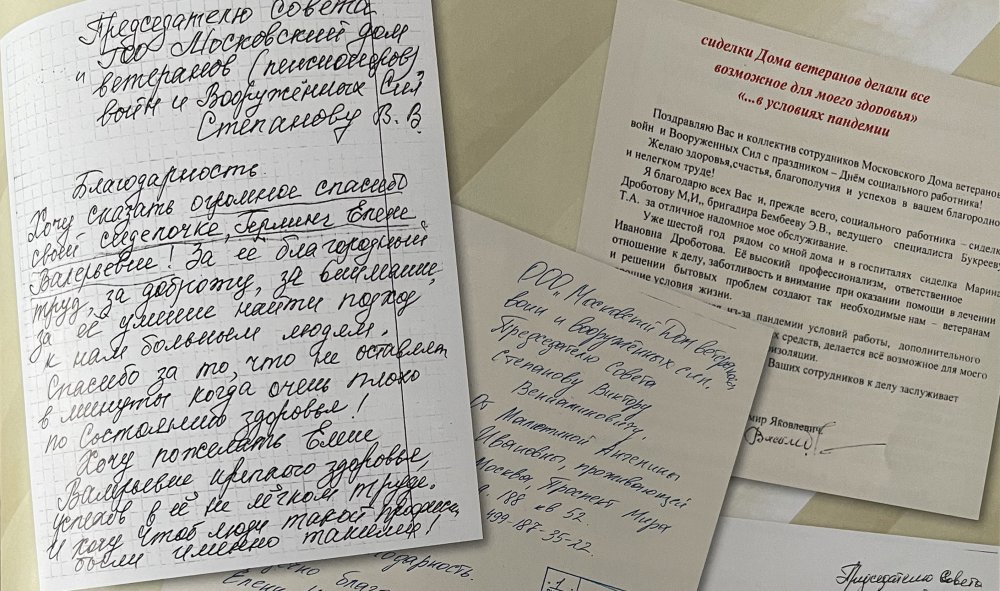 Председателю совета
ГОО Московский дом
ветеранов (пенсионеров)
войн и Вооружённых Сил
Степанову В. В.
Благодарность.
Хочу сказать огромное спасибо
своей сиделочке, Герминг Елене
Валерьевне! За её благородный
труд, за доброту, за внимание,
за её умение найти подход
к нам больным людям.
Спасибо за то, что не оставляет
в минуты когда очень плохо
по состоянию здоровья!
Хочу пожелать Елене
Валерьевне крепкого здоровья,
успехов в её не лёгком труде.
И хочу чтоб люди такой професси
были именно такими!
ООО "Московский Дом ветеранов
войн и вооружённых сил.
Председателю Совета
Степанову Виктору
Вениаминовичу.
От Малютиной Ангелины
Ивановны, проживающей
Москва, Проспект Мира
188 кв 52.
499-187-35-22.
благо
дарность.
Елени
сиделки Дома ветеранов делали все
возможное для моего здоровья»
«...в условиях пандемии
Поздравляю Вас и коллектив сотрудников Московского Дома ветеранов
войн и Вооруженных Сил с праздником – Днём социального работника!
Желаю здоровья,счастья, благополучия и успехов в вашем благородно
и нелегком труде!
Я благодарю всех Вас и, прежде всего, социального работника – сиделк
Дроботову М,И,, бригадира Бембееву Э.В., ведущего специалиста Букрееву
Т.А. за отличное надомное мое обслуживание.
Уже шестой год рядом со мной дома и в госпиталях сиделка Марина
Ивановна Дроботова. Её высокий профессионализм, ответственное
отношение к делу, заботливость и внимание при оказании помощи в лечении
и решении бытовых проблем создают так необходимые нам – ветеранам
рошие условия жизни.
из-за пандемии условий работы, дополнительного
х средств, делается всё возможное для моего
изоляции.
Ваших сотрудников к делу заслуживает
мир Яковлевич
Председателю Совета